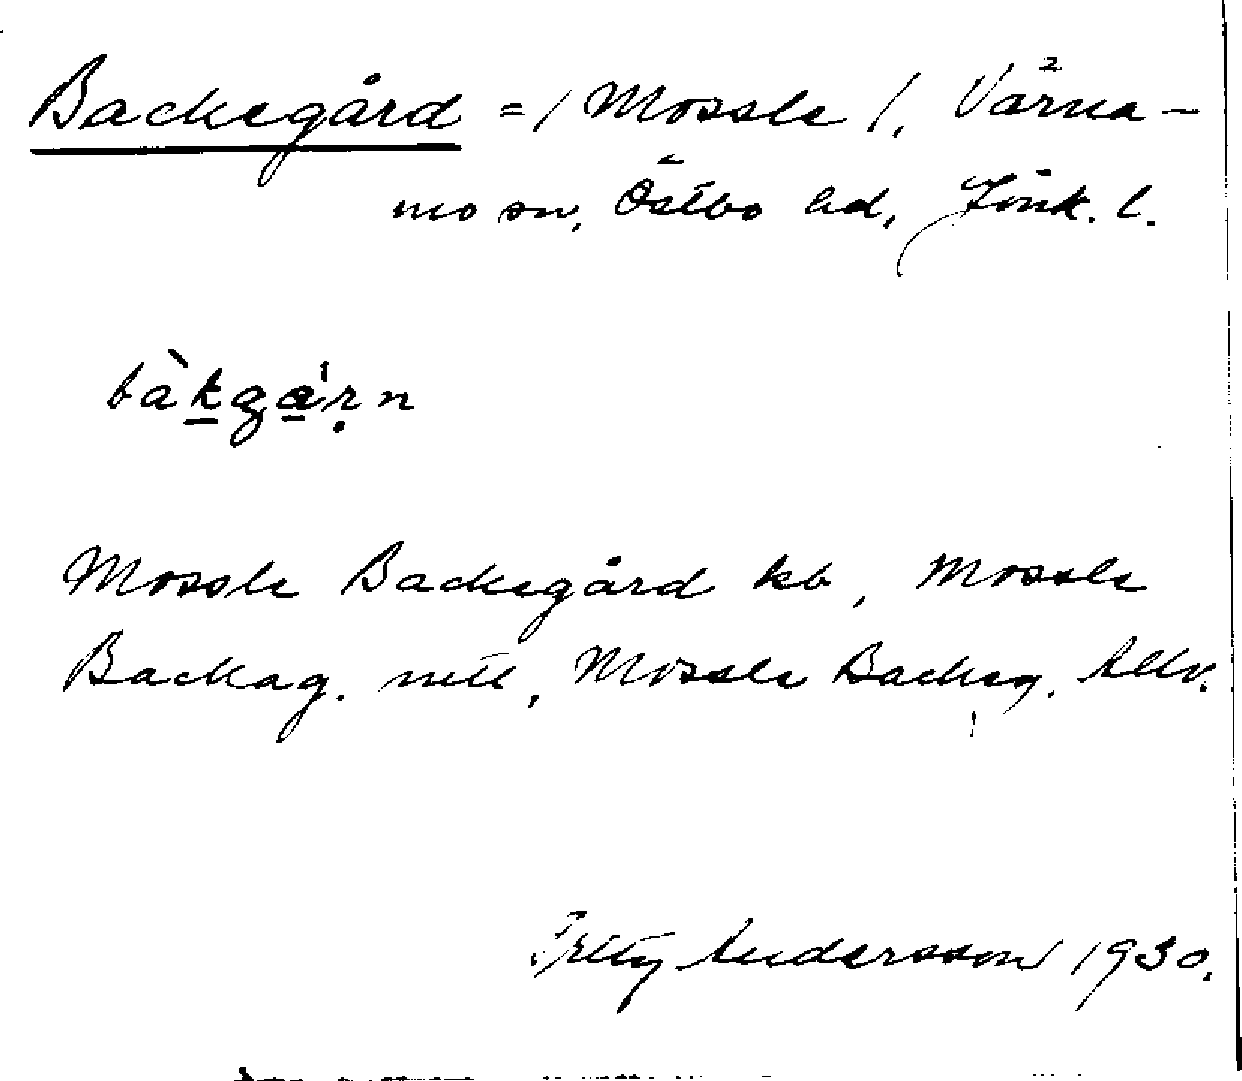 Backegård = / Mossle /, Värna-
mo sn, Östbo hd, Jönk. l.
bàkga'rn
Mossle Backegård kb, Mossle
Backag. mtl, Mossle Backeg.
Andersson 1930.